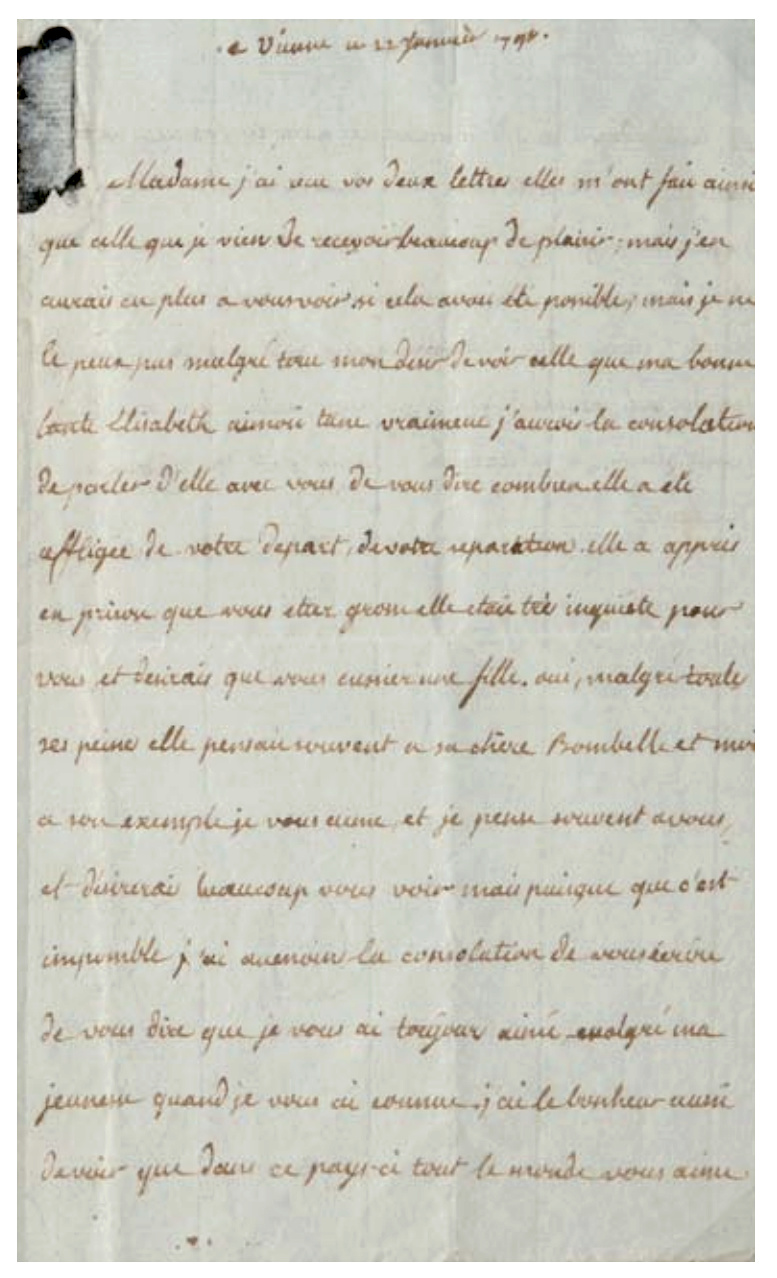 a Vienne ce 22 Janvier 179
Madame j'ai recu vos deux lettres elles m'ont fait ainsi
que celle que je vien de recevoir beaucoup de plaisir; mais j'en
aurais eu plus a vous voir si cela avoit été possible; mais je ne
le peux pas malgré tout mon desir de voir celle que ma bonne
tante Elisabeth aimoit tant vraiment j'aurois la consolation
de parler d'elle avec vous, de vous dire combien elle a ete
affligee de votre depart, de votre separation. elle a appris
en prison que vous etiez grosse elle etait tres inquiete pour
vous et desirais que vous eussiez une fille. oui, malgré toute
ses peine elle pensait souvent a sa chère Bombelle et moi
a son exemple je vous aime, et je pense souvent a vous,
et désirerai beaucoup vous voir mais puisque que c'est
impossible j'ai aumoins la consolation de vous écrire
de vous dire que je vous ai toujour aimé malgré ma
jeunesse quand je vous ai connue. j'ai le bonheur aussi
de voir que dans ce pays-ci tout le monde vous aime